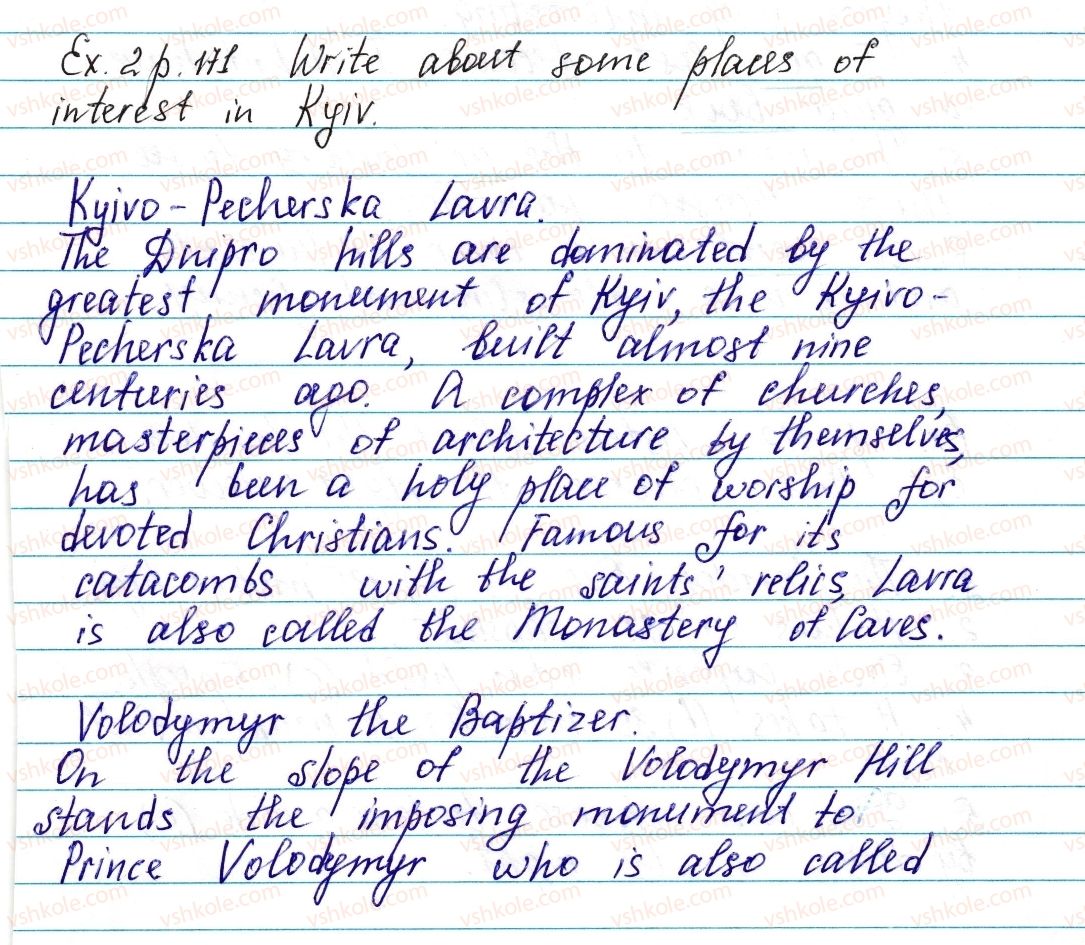 Ex. 2 p. 171 Write about some places of
interest in Kyiv.
Kyivo-Pecherska Lavra.
The Dnipro hills are dominated by the
greatest monument of Kyiv, the Kyivo-
Pecherska Lavra, built almost nine
centuries ago. A complex of churches,
masterpieces of architecture by themselves,
has been a holy place of worship for
devoted Christians. Famous for its
catacombs with the saints' relics, Lavra
is also called the Monastery of Caves.
Volodymyr the Baptizer.
On the slope of the Volodymyr Hill
stands the imposing monument to
Prince Volodymyr who is also called